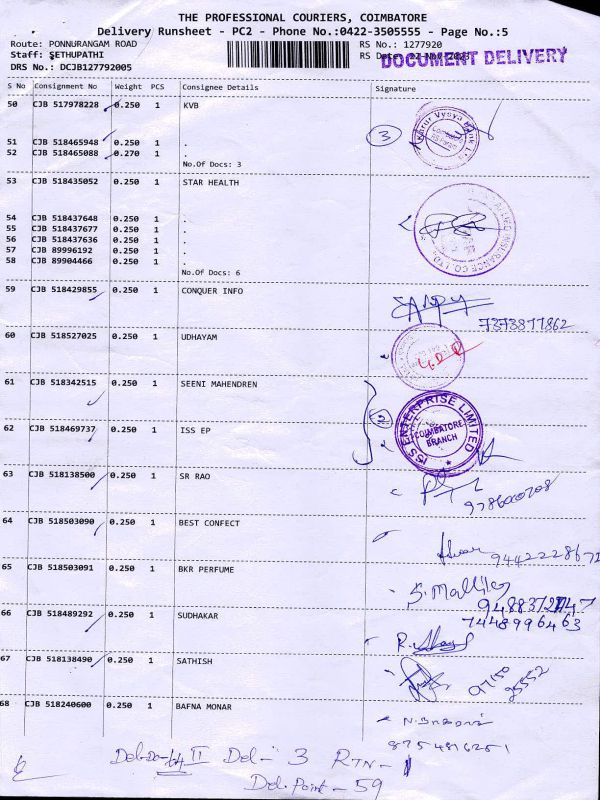 THE PROFESSIONAL COURIERS, COIMBATORE
Delivery Runsheet - PC2 - Phone No.:0422-3505555 - Page No.:5
Route: PONNURANGAM ROAD
RS No.: 1277920
Staff: SETHUPATHI
RS Date:
DOCUMENT DELIVERY
DRS No.: DCJB127792005
S No Consignment No Weight PCS Consignee Details Signature
50 CJB 517978228 0.250 1 KVB
3
51 CJB 518465948 0.250 1 .
52 CJB 518465088 0.270 1 .
No.Of Docs: 3
53 CJB 518435052 0.250 1 STAR HEALTH
54 CJB 518437648 0.250 1 .
55 CJB 518437677 0.250 1 .
56 CJB 518437636 0.250 1 .
57 CJB 89996192 0.250 1 .
58 CJB 89904466 0.250 1 .
No.Of Docs: 6
59 CJB 518429855 0.250 1 CONQUER INFO
7373877862
60 CJB 518527025 0.250 1 UDHAYAM
61 CJB 518342515 0.250 1 SEENI MAHENDREN
2
ISS ENTERPRISE LIMITED
COIMBATORE
BRANCH
62 CJB 518469737 0.250 1 ISS EP
63 CJB 518138500 0.250 1 SR RAO
64 CJB 518503090 0.250 1 BEST CONFECT
65 CJB 518503091 0.250 1 BKR PERFUME
S. Mallika
66 CJB 518489292 0.250 1 SUDHAKAR
7448996463
67 CJB 518138490 0.250 1 SATHISH
97150
95552
68 CJB 518240600 0.250 1 BAFNA MONAR
8754816251
Del - 3 RTN - 1
Del. Point - 59